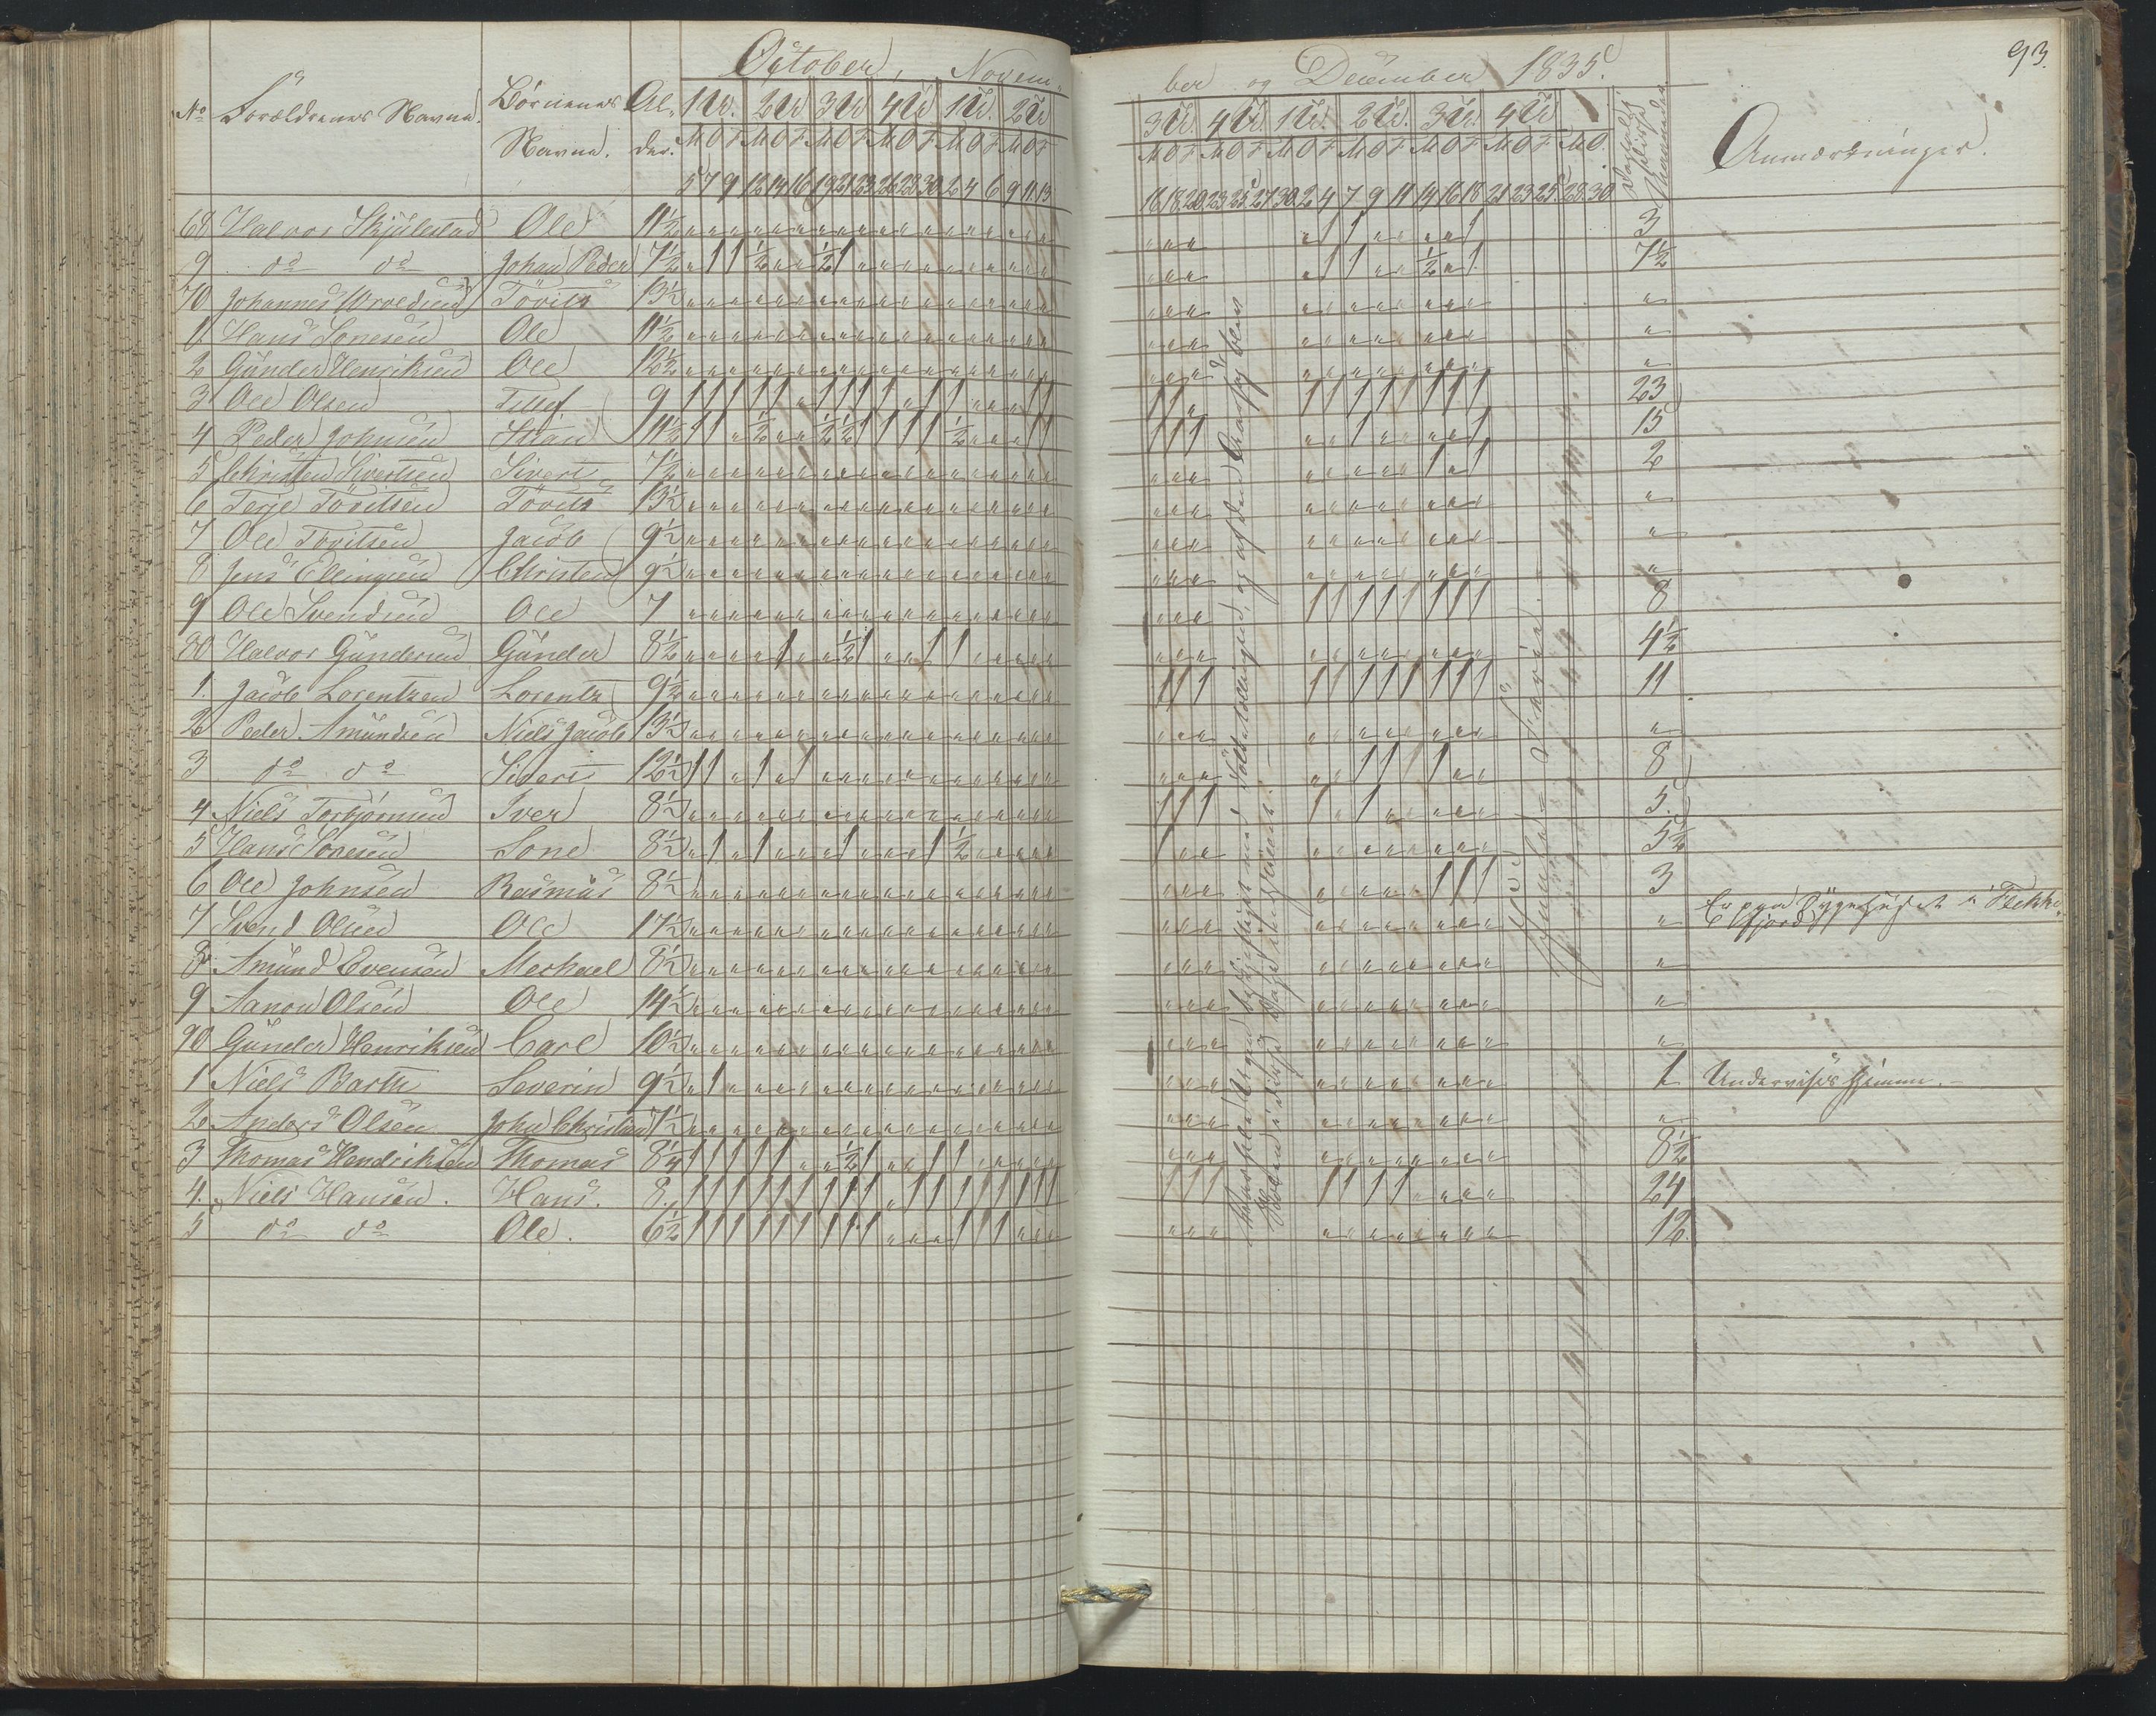 October, Novem-
ber og December 1835.
93.
No Forældrenes Navne. Børnenes Navne. Al- der. 1 U. 2 U. 3 U. 4 U. 1 U. 2 U. 3 U. 4 U. 1 U. 2 U. 3 U. 4 U. Anmærkninger.
M O F M O F M O F M O F M O F M O F M O F M O F M O F M O F M O F M O F M O
5 7 9 12 14 16 19 21 23 26 28 30 2 4 6 9 11 13 16 18 20 23 25 27 30 2 4 7 9 11 14 16 18 21 23 25 28 30
68 Halvor Skjulestad Ole 11½ 3
9 do do Johan Peder 7½ 7½
70 Johannes Tövits 13½ "
1 Hans Sonesen Ole 11½ "
2 Gunder Henriksen Ole 12½ "
3 Ole Olsen Tellef 9 23
4 Peder Johnsen 11½ 15
5 Christen Sivertsen Sivert 7½ 2
6 Terje Tövitsen Tövits 13½ "
7 Ole Tovitsen Jacob 9½ "
8 Jens Ellingsen Christen 9½ "
9 Ole Svendsen Ole 7 8
80 Halvor Gundersen Gunder 8½ 4½
1. Jacob Lorentzen Lorentz 9½ 11
2 Peder Amundsen Niels Jacob 13½ "
3 do do Sivert 12½ 8
4 Niels Torbjörnsen Iver 8½ 5
5 Hans Sonesen Sone 8½ 5½
6 Ole Johnsen Rasmus 8½ 3
7 Svend Olsen Ole 17½ " Er paa Sygehuset i Flekke-
fjord
8 Amund Evensen Mechael 8½ "
9 Aanon Olsen Ole 14½ "
90 Gunder Henriksen Carl 10½ "
1 Niels Barth Severin 9½ 1 Undervises hjemme.
2 Anders Olsen John Christian 7½ "
3 Thomas Hendriksen Thomas 8¼ 8½
4. Niels Hansen. Hans. 8. 24
5 do do Ole. 6½ 12